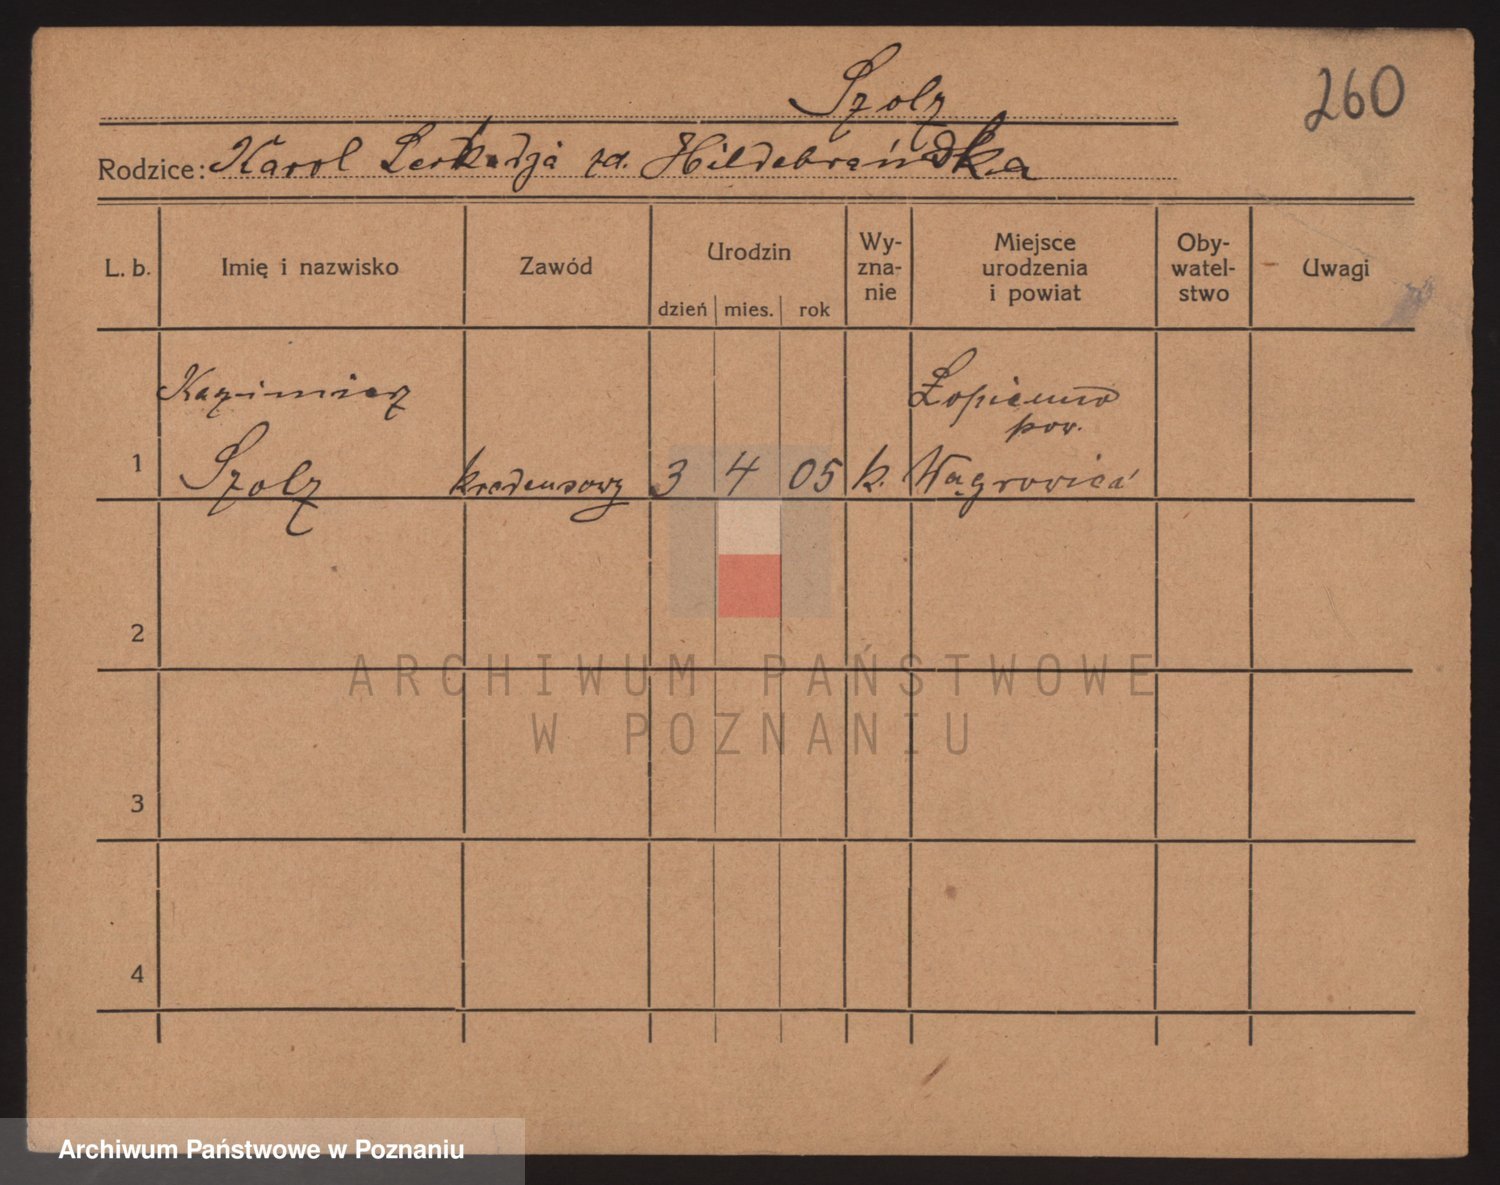 260
Szolz
Rodzice: Karol Leokadja zd. Hildebrańdka
L. b. Imię i nazwisko Zawód Urodzin dzień mies. rok Wy-zna-nie Miejsce urodzenia i powiat Oby-watel-stwo Uwagi
Kazimierz Łopienno
pow.
1 Szolz kredensowy 3 4 05 k. Wągrowiec
2
3
4
ARCHIWUM PAŃSTWOWE
W POZNANIU
Archiwum Państwowe w Poznaniu